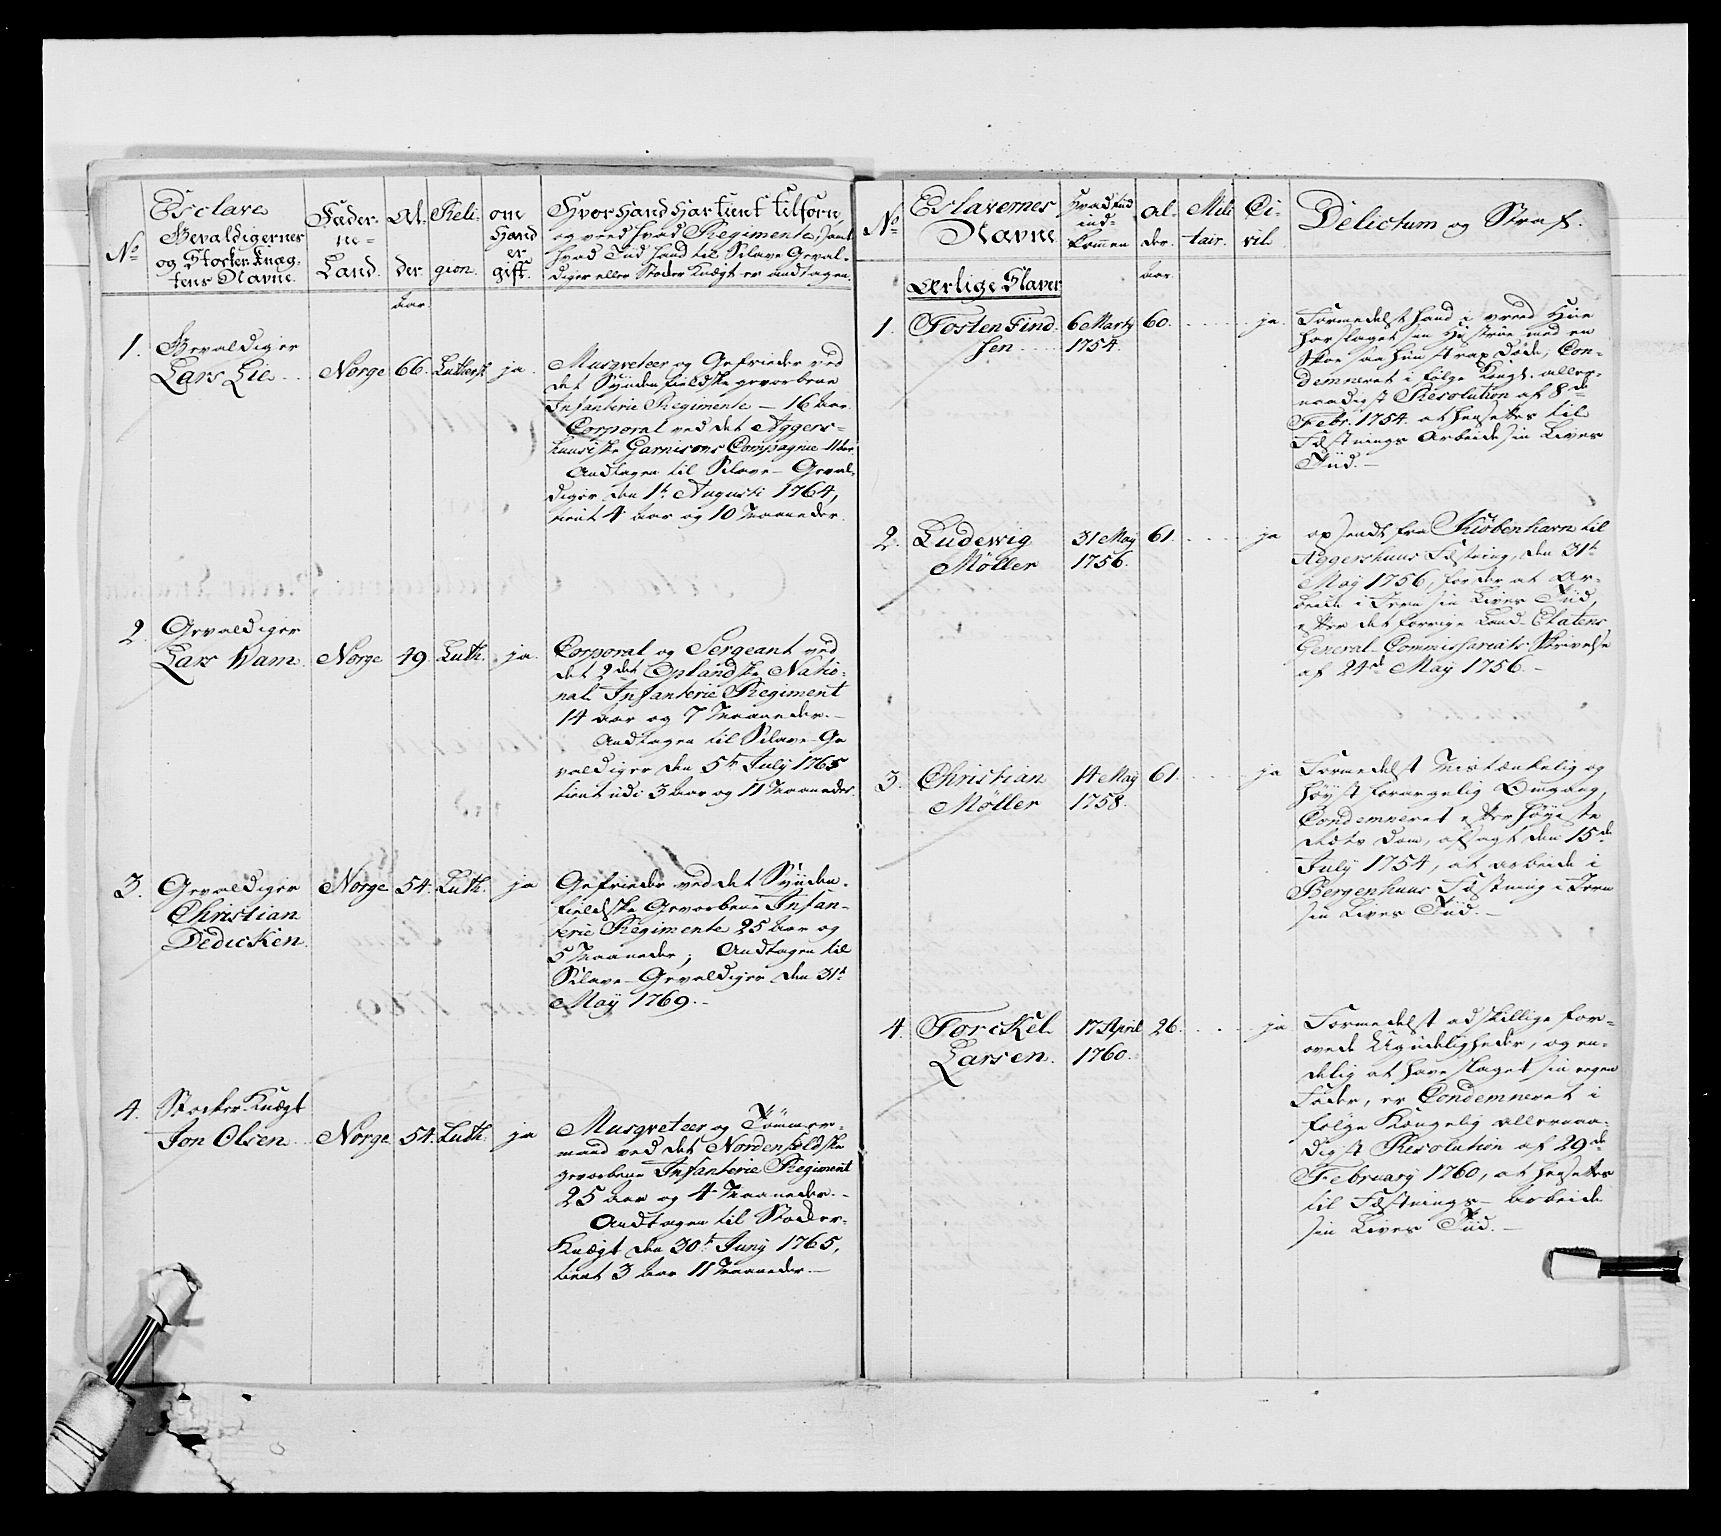 No
Esclave
Gevaldigernes
og Stocker Knæg-
tens Navne.
Fader-
ne-
Land.
Al-
der
Reli-
gion.
om
Hand
er
gift.
Hvor Hand Har tient tilforn,
og ved hvad Regimente, samt
hvad Tiid hand til Slave Geval-
diger eller Stocker Knægt er andtagen.
Aar.
1. Gevaldiger
Lars Lie Norge 66. Luthersk ja.
Musqveteer og Gefrieder ved
det Syndenfieldske gevorbene
Infanterie Regimente – 16 Aar.
Corporal ved det Aggers-
huusiske Garnisons Compagnie 11 Aar
Andtagen til Slave-Geval-
diger den 1t Augusti 1764,
tient 4 Aar og 10 Maaneder.
2. Gevaldiger
Lars Wam Norge 49 Luth. ja.
Corporal og Sergeant ved
det 2det Oplandske Natio-
nal Infanterie Regiment
14 Aar og 7 Maaneder.-
Andtagen til Slave-Ge
valdiger den 5t July 1765
tient udi 3 Aar og 11 Maaneder
3. Gevaldiger
Christian
Dedicken Norge 54. Luth. ja
Gefrieder ved det Synden-
fieldske Gevorbene Infan-
terie Regimente 25 Aar og
5 Maaneder; Andtagen til
Slave-Gevaldiger den 31t
May 1769.-
4. Stocker Knægt
Jon Olsen Norge 54. Luth. ja
Musqveteer og Tømmer-
mand ved det Nordenfieldske
gevorbene Infanterie Regiment
25 Aar og 4 Maaneder.-
Andtagen til Stocker-
Knægt den 30t Juny 1765,
tient 3 Aar 11 Maaneder.-
No
Eslavernes
Navne
Hvad tiid
ind-
kommen
Al-
der.
Mili
tair.
Ci-
vil.
Delictum og Straf.
Aar.
Ærlige Slaver
1. Tosten Find
sen 6 Marty
1754. 60. ja.
Formedelst hand i vreed Hue
har slaget sin Hustrue med en
Skoe saa hun strax døde, Con-
demneret i følge Kongl. aller-
naadigst Resolution af 8de
Febr. 1754. at hensettes til
Fæstnings Arbeide sin Lives
Tiid.-
2. Ludewig
Møller 31 May
1756. 61. ja
opsendt fra Kiøbenhavn til
Aggershuus Fæstning, den 31t
May 1756, for der at Ar-
beide i Jern sin Lives Tiid,
efter det forrige Land-Etatens
General-Commissariats Skrivelse
af 24de May 1756.-
3. Christian
Møller 14 May
1758. 61. ja
Formedelst Mistænkelig og
høyst forargelig Omgang,
Condemneret efter høyeste
Retts Dom, afsagt den 15de
July 1754, at arbeide i
Bergenhuus Fæstning i Jern
sin Lives Tiid.-
4. Torckel
Larsen 17 April
1760. 26. ja
Formedelst adskillige for-
øvede Ugudeligheder, og en-
delig at have slaget sin egen
Fader, er Condemneret i
følge Kongelig allernaa-
digst Resolution af 29de
February 1760, at hensettes
til Fæstnings-Arbeide
sin Lives Tiid.-